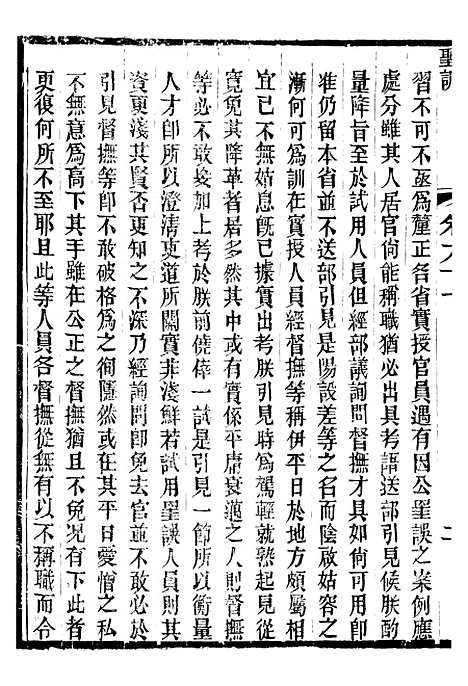 聖訓
習不可不亟爲釐正各省實授官員遇有因公罣誤之案例應
處分雖其人居官尙能稱職猶必出具考語送部引見候朕酌
量降旨至於試用人員但經部議詢問督撫才具如尙可用卽
准仍留本省並不送部引見是陽設差等之名而陰啟姑容之
漸何可爲訓在實授人員經督撫等稱伊平日於地方頗屬相
宜已不無姑息旣已據實出考朕引見時爲駕輕就熟起見從
寬免其降革者居多然其中或有實係平庸衰邁之人則督撫
等必不敢登上考於朕前僥倖一試是引見一節所以衡量
人才卽所以澄淸吏道所關實非淺鮮若試用罣誤人員則其
資更淺其賢否更知之不深乃經詢問卽免去官並不敢必於
引見督撫等卽不敢破格爲之徇隱然或在其平日愛憎之私
不無意爲高下其手雖在公正之督撫猶且不免況有加於此
更復何所不至耶且此等人員各督撫從無有以不稱職而令